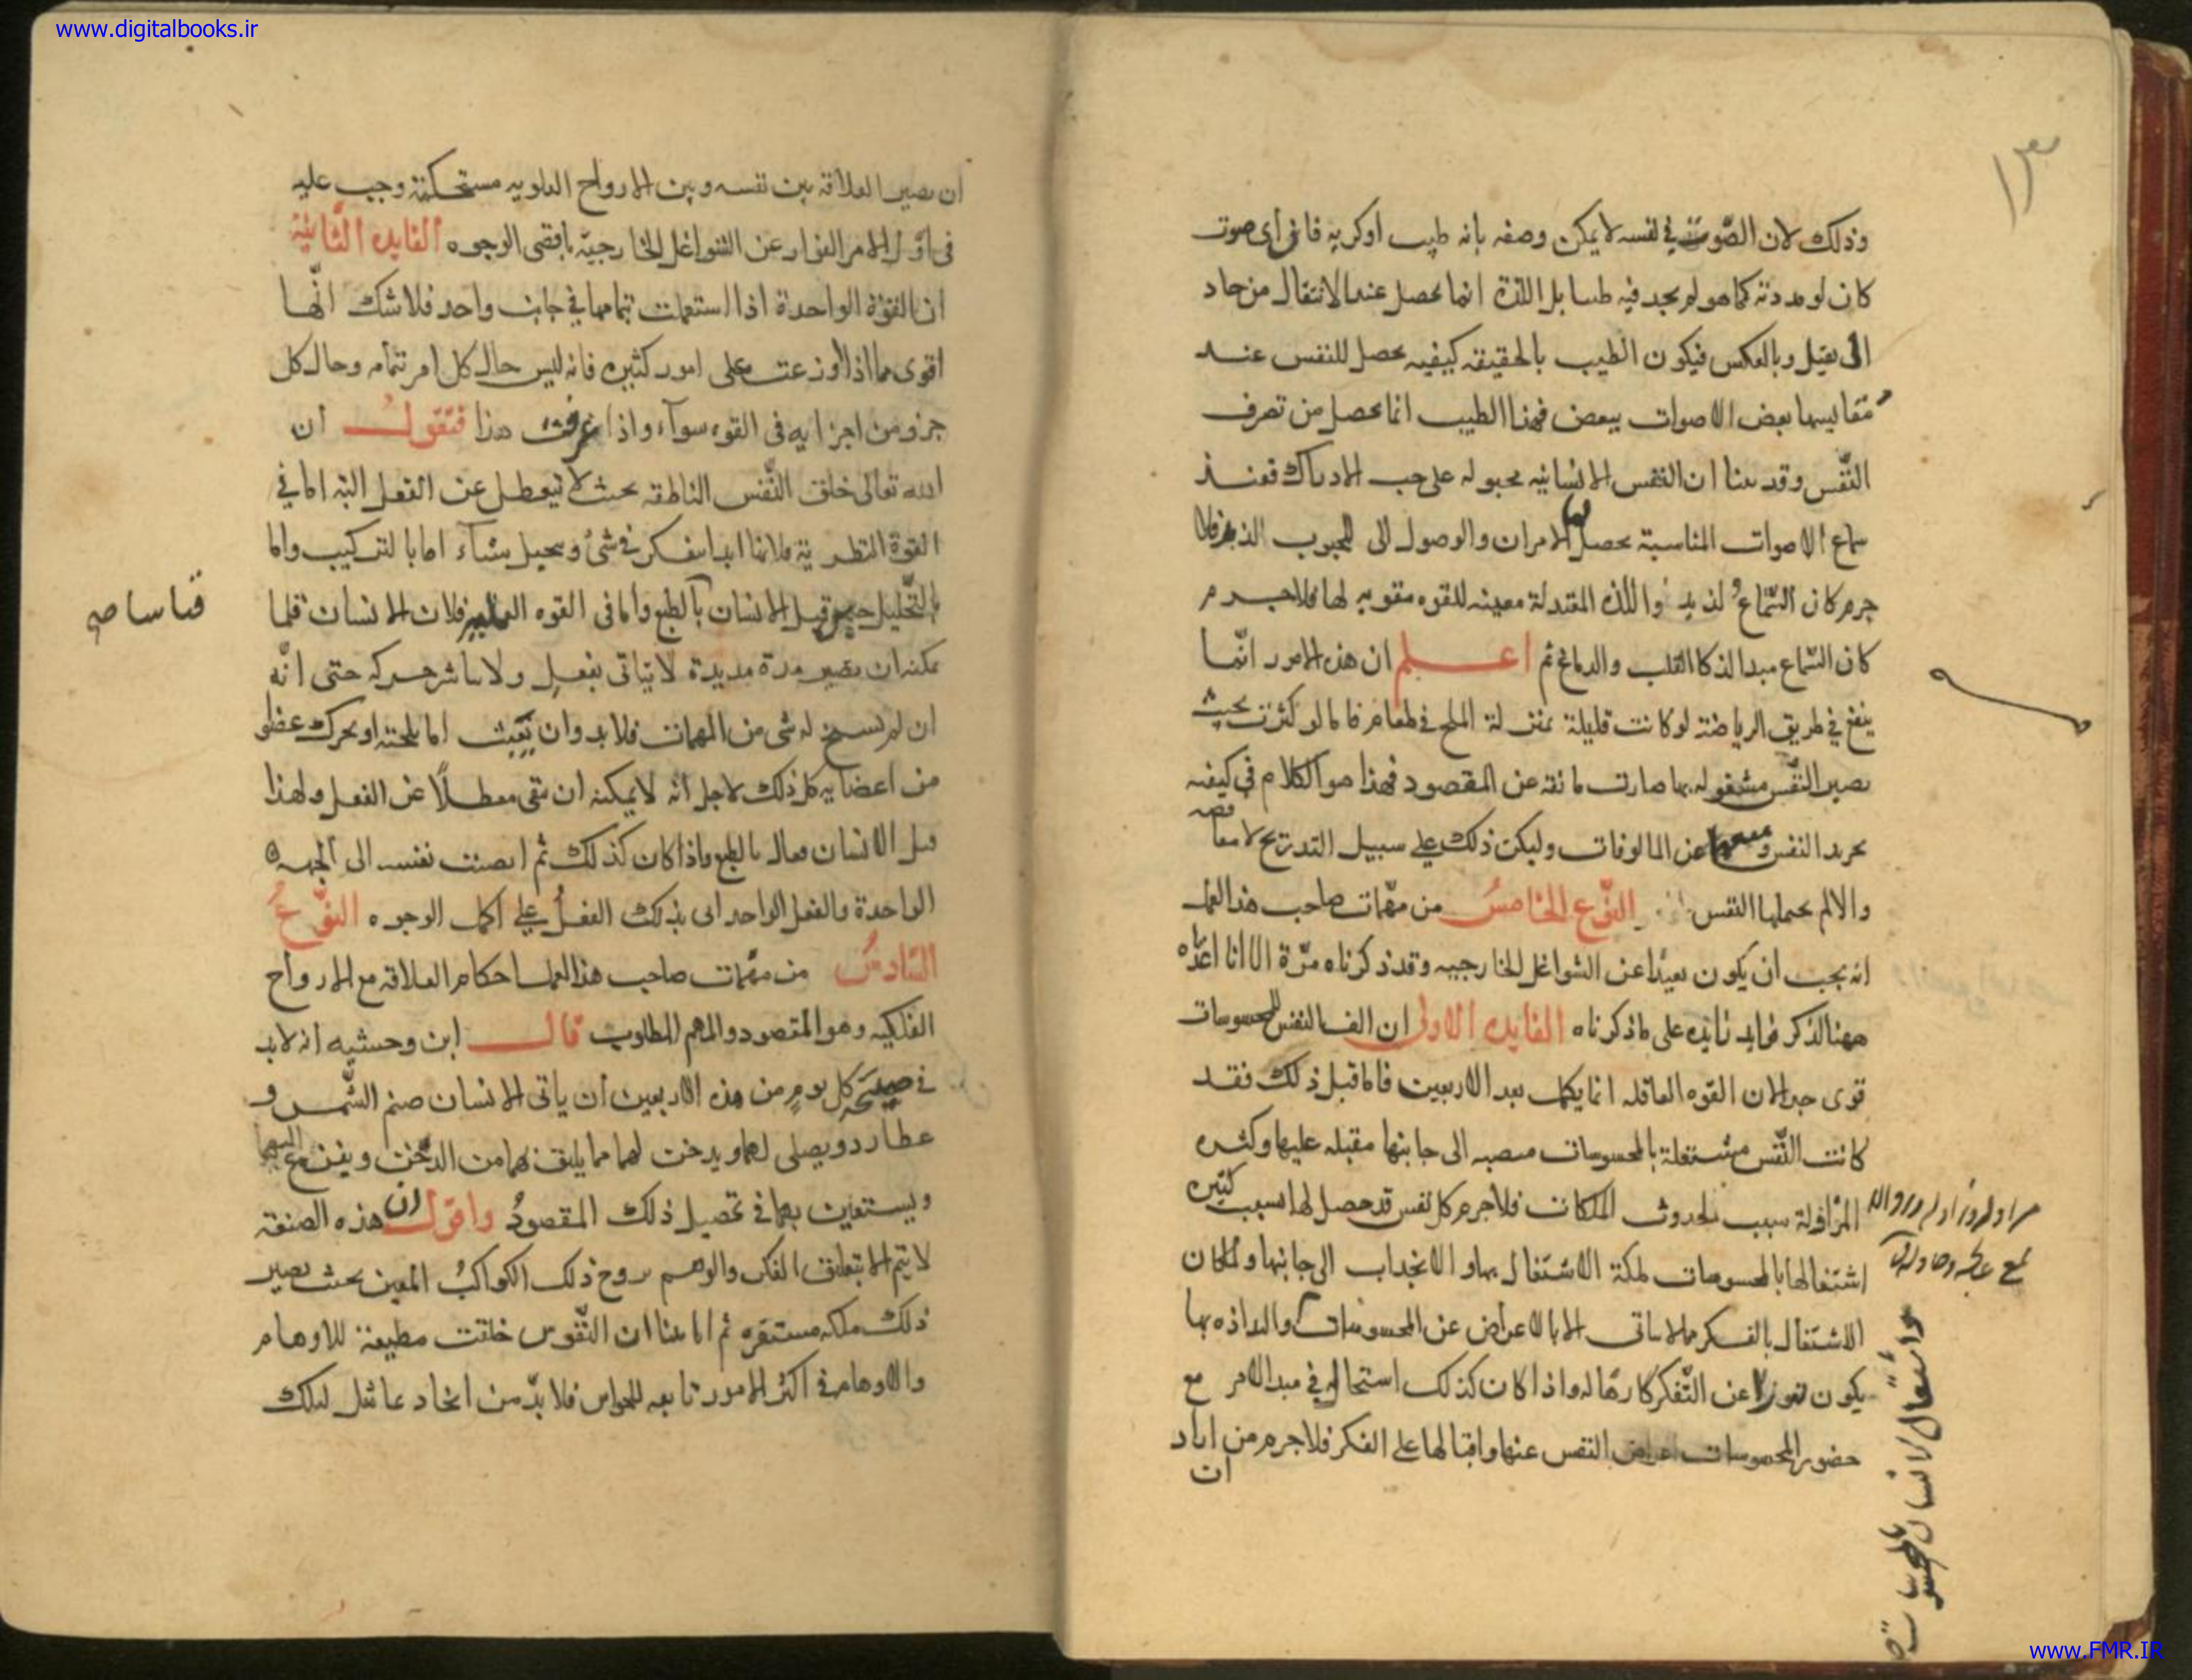 www.digitalbooks.ir
وذلك لان الصّوت في نفسه لا يمكن وصفه بانه طيب اوكريه فانى اى صوت
كان لو مددته كما هو لم يجد فيه طيبا بل اللذة انما يحصل عند الانتقال من حاد
الى ثقيل وبالعكس فيكون الطيب بالحقيقه كيفيه يحصل للنفس عند
مقايسها بعض الاصوات ببعض فهذا الطيب انما يحصل من تصرف
النّفس وقد بينا ان النفس الانسانيه مجبوله على حب الادراك فعند
سماع الاصوات المناسبة يحصل لها الامران والوصول الى المحبوب الذيذ فلا
جرم كان السّماع لذيذ واللذه المعتدلة معينه للقوه مقويه لها فلا جرم
كان السّماع مبدا لذكا القلب والدماغ ثم اعلم ان هذه الامور انّما
ينفع في طريق الرياضة لو كانت قليلة بمنزلة الملح في لطعام فاما لو كثرت بحيث
يصير النّفس مشغوله بها صارت مانعة عن المقصود فهذا هو الكلام في كيفيه
تجريد النفس عن المالوفات وليكن ذلك على سبيل التدريج لا مغافصه
والا لم يحملها النفس النّوع الخامسُ من مهّمات صاحب هذا العمل
انه يجب ان يكون بعيدًا عن الشواغل الخارجيه وقد ذكرناه مرّة الا انا اعدناه
ههنا لذكر فوايد زايده على ما ذكرناه الفايده الاولى ان الف النفس للمحسوسات
قوى جدا لان القوه العاقله انما يكمل بعد الاربعين فاما قبل ذلك فقد
كانت النّفس مشتغلة بالمحسوسات منصبه الى جانبها مقبله عليها وكثره
المزاولة سبب لحدوث الملكات فلا جرم كل نفس قد حصل لها بسبب كثره
اشتغالها بالمحسوسات ملكة الاشتغال بها والانجذاب الى جانبها ولما كان
الاشتغال بالفكر مما لا يتاتى الا بالاعراض عن المحسوسات والتذاذه بها
يكون نفورا عن التّفكر كارها له واذا كان كذلك استحال في مبدا الامر مع
حضور المحسوسات اعراض النفس عنها واقبالها على الفكر فلا جرم من اراد
ان
واشتغال الانسان بالمحسوسات
ان يصير العلاقة بين نفسه وبين الارواح العلويه مستحكمة وجب عليه
في اوّل الامر الفرار عن الشواغل الخارجيّه باقصى الوجوه الفايده الثّانيةُ
ان القوّة الواحدة اذا استعملت بتمامها في جانب واحد فلا شك انّها
اقوى مما اذا وزعت على امور كثيره فانه ليس حال كل امر بتمامه وحال كل
جزو من اجزايه فى القوه سوآء واذا عرفت هذا فنقولُ ان
الله تعالى خلق النّفس الناطقه بحيث لا يتعطل عن الفعل البته اما في
القوة النظرية فلانها ابدا يتفكر في شئ وتحيل شيأ اما بالتركيب واما
بالتّحليل حتى قيل الانسان بالطبع واما فى القوه العمليه فلان الانسان قلما
قناسا صح
يمكنه ان يصير مدة مديدة لا يتاتى بفعل ولا يباشر حركه حتى انّه
ان لم يسنح له شى من المهمات فلا بد وان يعبث اما بلحيته او يحرك عضوا
من اعضايه كل ذلك لاجل انه لا يمكنه ان يبقى معطلًا عن الفعل ولهذا
قيل الانسان فعال بالطبع واذا كان كذلك ثم انصبت نفسه الى الجهه
الواحدة والفعل الواحد اتى بذلك الفعل على اكمل الوجوه النّوعُ
السّادسُ من مهّمات صاحب هذا العمل احكام العلاقه مع الارواح
الفلكيه وهو المقصود والمهم المطلوب قال ابن وحشيه انه لا بد
في صبيحة كل يوم من هذه الاربعين ان ياتى الانسان صنم الشّمس و
عطارد ويصلى لهما ويدخن لهما مما يليق بهما من الدّخن ويتضرع اليهما
ويستعين بهما في تحصيل ذلك المقصودُ واقول ان هذه الصنعة
لا يتم الا بتعليق الفكر والوهم بروح ذلك الكواكبُ المعين بحيث يصير
ذلك ملكه مستقره ثم انا بينا ان النّفوس خلقت مطيعة للاوهام
والاوهام في اكثر الامور تابعه للحواس فلا بدّ من اتخاذ تماثيل لتلك
www.FMR.IR